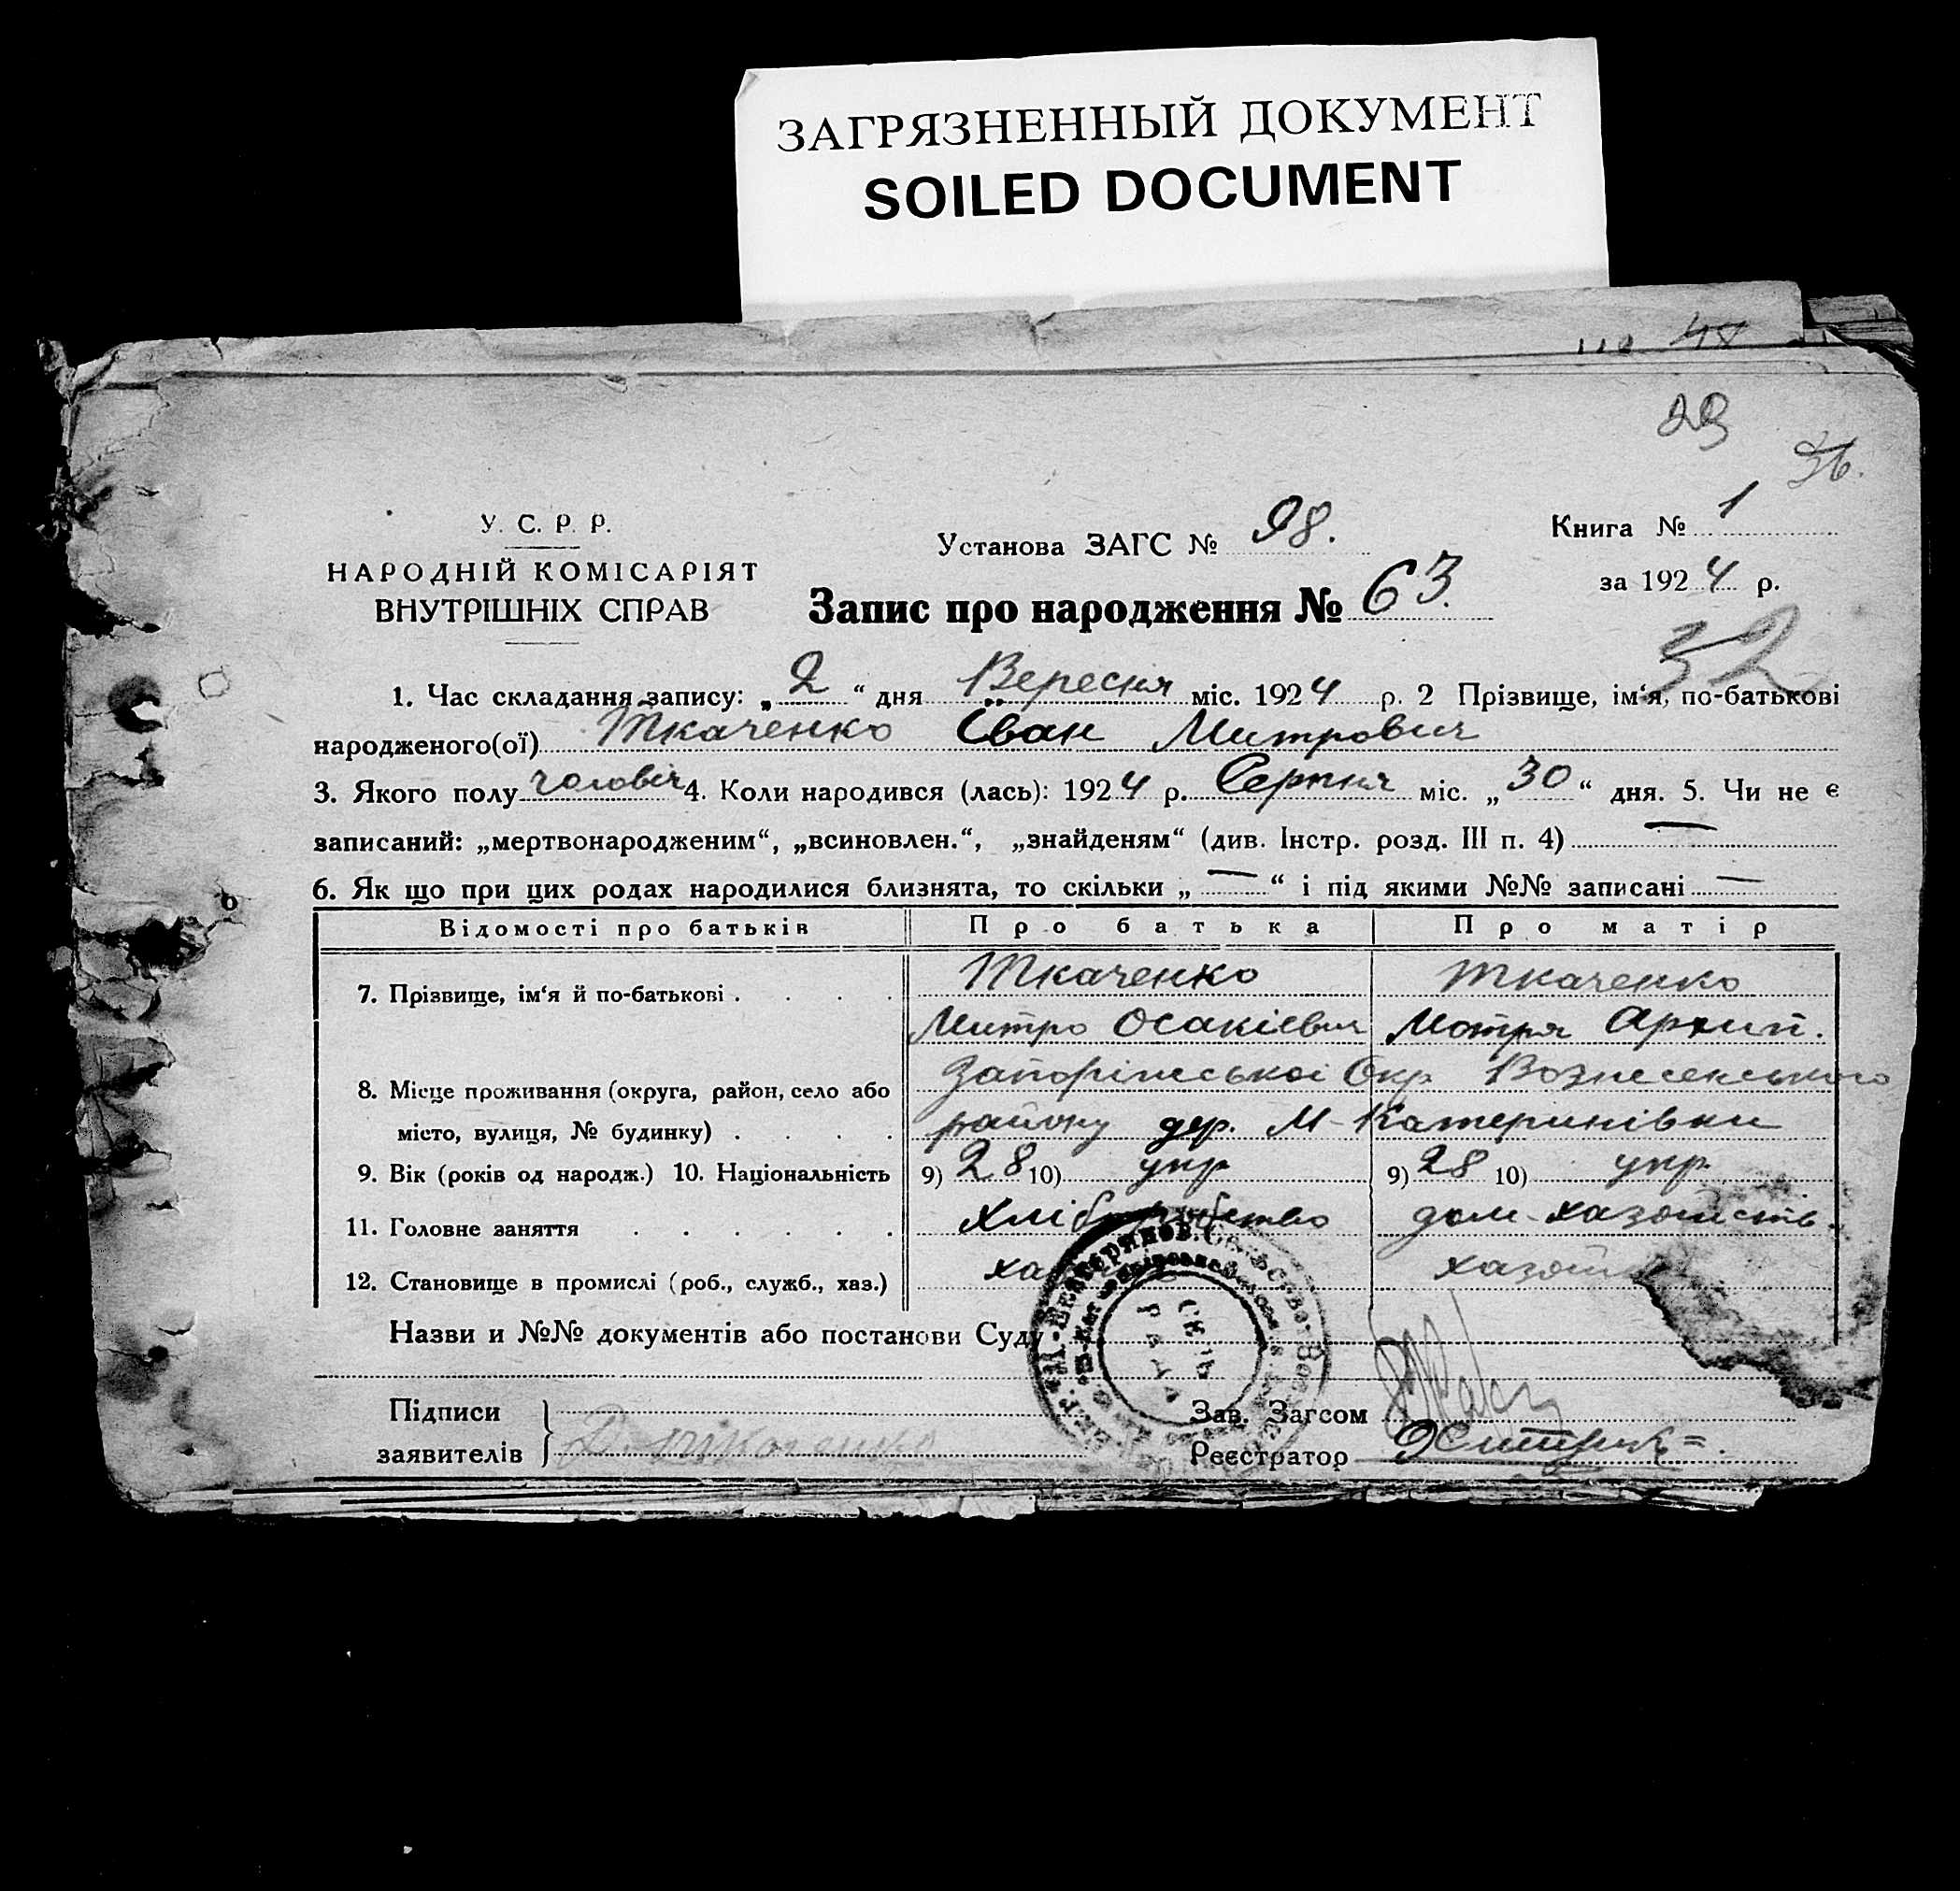 ЗАГРЯЗНЕННЫЙ ДОКУМЕНТ
SOILED DOCUMENT
48
23
36.
У. С. Р. Р.
НАРОДНІЙ КОМІСАРІЯТ
ВНУТРІШНІХ СПРАВ
Установа ЗАГС № 98.
Книга № 1
за 1924 р.
Запис про народження № 63.
52
1. Час складання запису: „2“ дня Вересня міс. 1924 р. 2 Прізвище, ім‘я, по-батькові
народженого(ої) Ткаченко Іван Митрович
3. Якого полу чоловіч 4. Коли народився (лась): 1924 р. Серпня міс. „30“ дня. 5. Чи не є
записаний: „мертвонародженим“, „всиновлен.“, „знайденям“ (див. Інстр. розд. III п. 4) —
6. Як що при цих родах народилися близнята, то скільки „—“ і під якими №№ записані —
Відомості про батьків Про батька Про матір
7. Прізвище, ім‘я й по-батькові . . . . Ткаченко Ткаченко
Митро Осакіевич Мотря Архип.
8. Місце проживання (округа, район, село або Запоріжської Окр Вознесенського
місто, вулиця, № будинку) . . . . району дер. М-Катеринівки
9. Вік (років од народж.) 10. Національність 9) 28 10) укр 9) 28 10) укр
11. Головне заняття . . . . . . хліборобство дом-хазяйств.
12. Становище в промислі (роб., служб., хаз.)
Назви и №№ документів або постанови Суду
Підписи
заявителів Д. Ткаченко
Зав. Загсом
Реєстратор